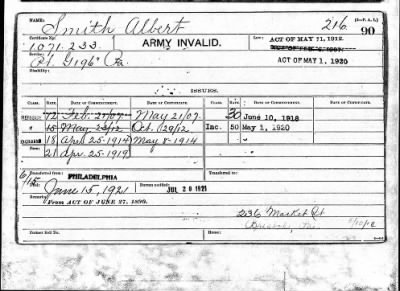 NAME: Smith Albert 216 (3-F.A.L.) 90
Certificate No.: 1,071,233. ARMY INVALID. Law: ACT OF MAY 11, 1912.
Service: Pt. G196" Pa. ACT OF MAY 1, 1920
Disability:
ISSUES.
CLASS. RATE. DATE OF COMMENCEMENT. DATE OF CERTIFICATE. CLASS. RATE. DATE OF COMMENCEMENT. DATE OF CERTIFICATE.
REISSUE 12 Feb. 21/07 May 21/07. 30 June 10, 1918
" 15 May 23/12 Oct. 29/12 Inc. 50 May 1, 1920
18 April 25-1914 May 8-1914
21 Apr. 25-1919
6/15 Transferred from: PHILADELPHIA Transferred to:
Died: June 15, 1921 Bureau notified: JUL 20 1921
Remarks: From ACT OF JUNE 27, 1890.
236 Market St
Former Roll No. Home: